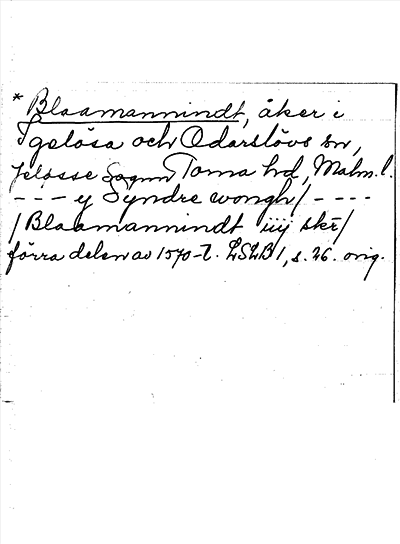 * Blaamannindt, åker i
Igelösa och Odarslövs sn,
Jelösse Sognn Torna hd, Malm. l.
- - - y Syndre wongh/ - - - -
/ Blaamannindt iiij skr/
förra delen av 1570-t. LSLB 1, s. 26. orig.